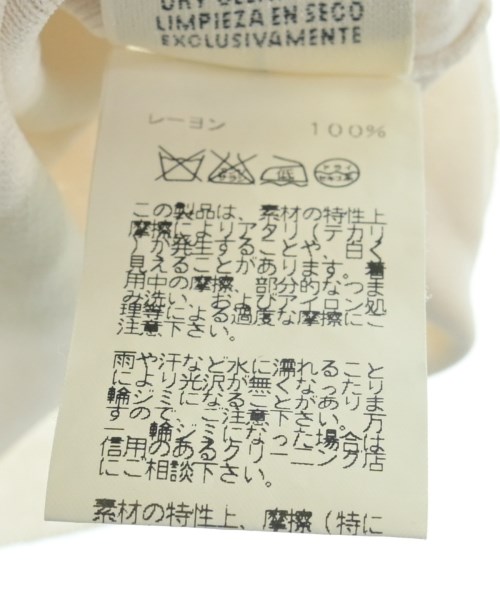 DRY CLEAN
LIMPIEZA EN SECO
EXCLUSIVAMENTE
レーヨン 100%
エンソ サラシ
低
ドライ
この製品は、素材の特性上
摩擦によりアタリ(テカリ
)が発生することや、白く
見えることがあります。着
用中の摩擦、部分的なつま
み洗い、およびアイロン処
理等による過度な摩擦にご
注意下さい。
雨や汗など水に濡れること
により光沢が無くなったり
輪ジミになることがありま
すので、ご注意下さい。万
一、輪ジミになった場合は
信用のあるクリーニング店
にご相談下さい。
素材の特性上、摩擦(特に